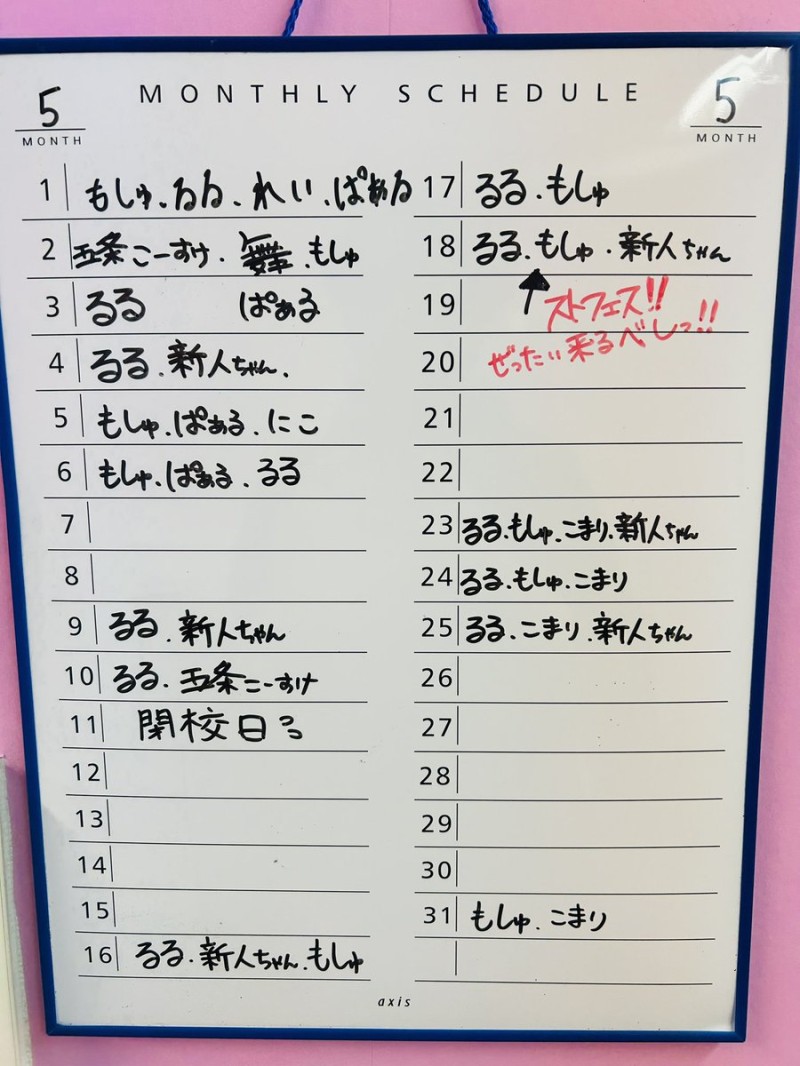 MONTHLY SCHEDULE
5
MONTH
5
MONTH
1 もしゅ.るる.れい.ぱぁる
2 五条こーすけ.舞.もしゅ
3 るる ぱぁる
4 るる.新人ちゃん.
5 もしゅ.ぱぁる.にこ
6 もしゅ.ぱぁる.るる
7
8
9 るる.新人ちゃん
10 るる.五条こーすけ
11 閉校日
12
13
14
15
16 るる.新人ちゃん.もしゅ
17 るる.もしゅ
18 るる.もしゅ.新人ちゃん
19 ストフェス!!
20 ぜったい来るべしっ!!
21
22
23 るる.もしゅ.こまり.新人ちゃん
24 るる.もしゅ.こまり
25 るる.こまり.新人ちゃん
26
27
28
29
30
31 もしゅ.こまり
axis